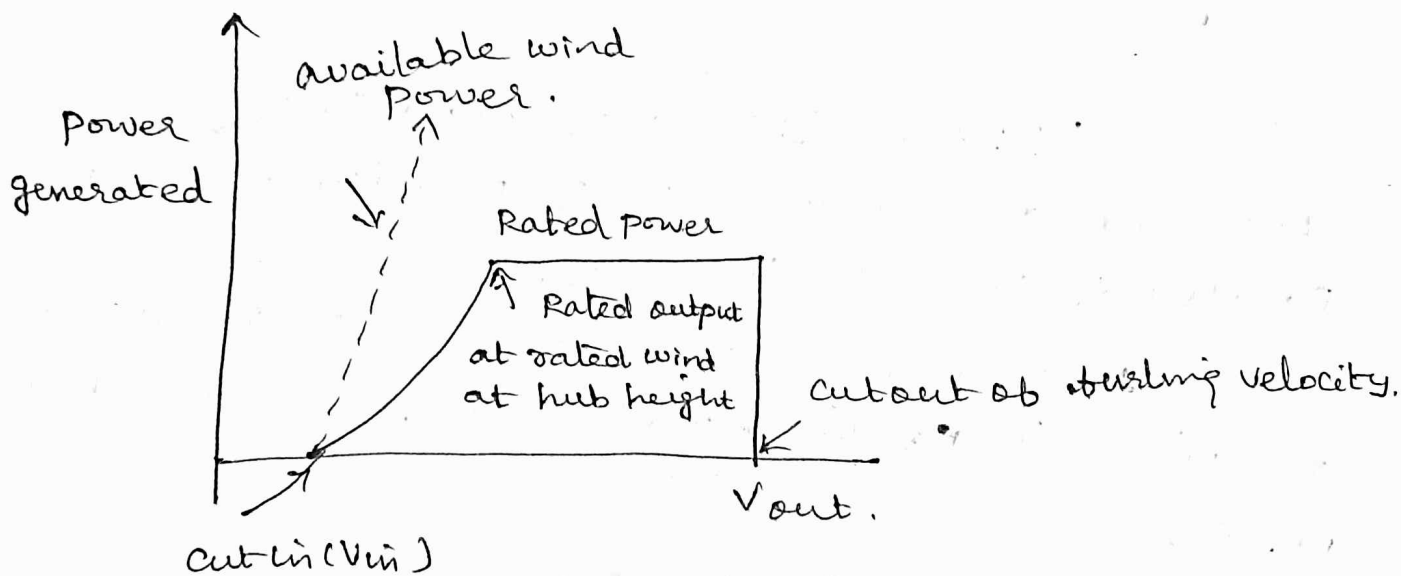 available wind
power.
Power
generated
Rated power
Rated output
at rated wind
at hub height
cutout of furling velocity.
Vout.
cut in (Vin)